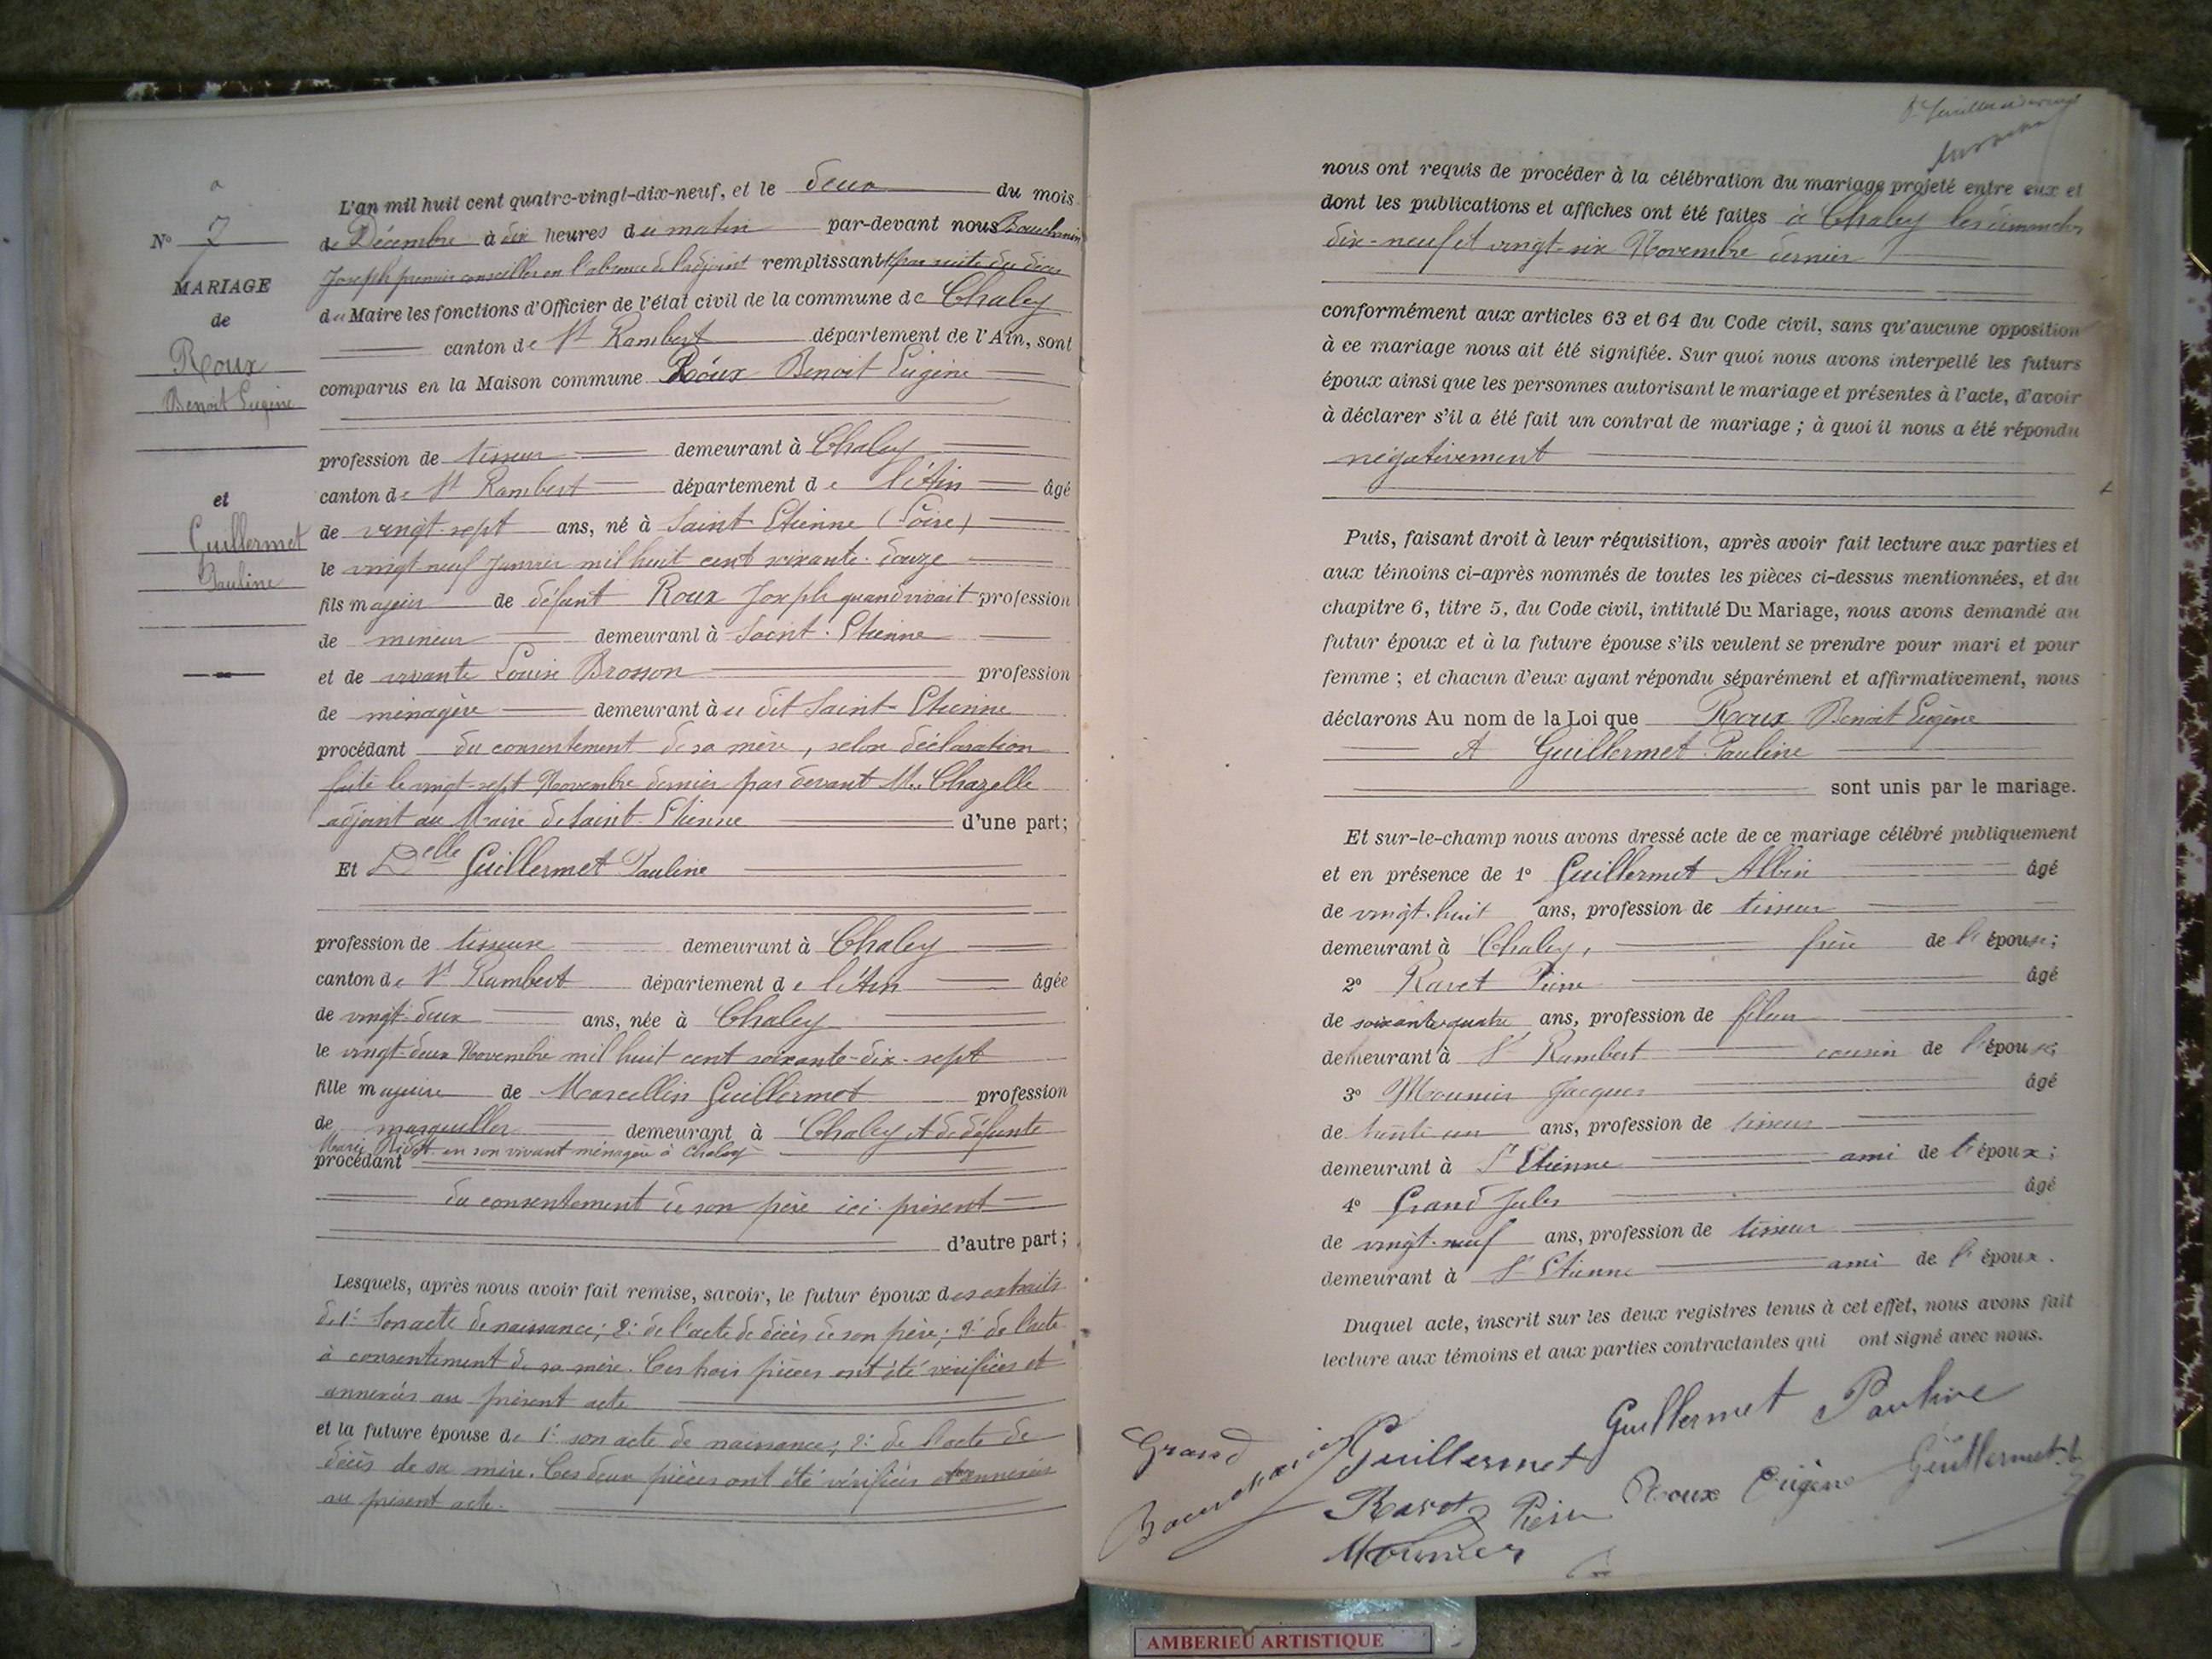 N° 7
MARIAGE
de
Roux
Benoit Eugène
et
Guillermet
Pauline
L'an mil huit cent quatre-vingt-dix-neuf, et le deux du mois
de Décembre à dix heures du matin par-devant nous Bouchenin
Joseph premier conseiller en l'absence de l'adjoint remplissant par suite du décès
du Maire les fonctions d'Officier de l'état civil de la commune de Chaley
canton de St Rambert département de l'Ain, sont
comparus en la Maison commune Roux Benoit Eugène
profession de tisseur demeurant à Chaley
canton de St Rambert département de l'Ain âgé
de vingt-sept ans, né à Saint-Etienne (Loire)
le vingt neuf Janvier mil huit cent soixante-douze
fils majeur de défunt Roux Joseph quand vivait profession
de mineur demeurant à Saint-Etienne
et de vivante Louise Brosson profession
de ménagère demeurant à u dit Saint-Etienne
procédant du consentement de sa mère, selon déclaration
faite le vingt-sept Novembre dernier par devant Mr Chazelle
adjoint au Maire de Saint-Etienne d'une part;
Et Delle Guillermet Pauline
profession de tisseuse demeurant à Chaley
canton de St Rambert département de l'Ain âgée
de vingt-deux ans, née à Chaley
le vingt-deux Novembre mil huit cent soixante-dix-sept
fille majeure de Marcellin Guillermet profession
de marguiller demeurant à Chaley et de défunte
Marie en son vivant ménagère à Chaley
procédant
du consentement de son père ici présent
d'autre part;
Lesquels, après nous avoir fait remise, savoir, le futur époux des extraits
de 1° Son acte de naissance; 2° de l'acte de décès de son père; 3° de l'acte
à consentement de sa mère. Ces trois pièces ont été vérifiées et
annexées au présent acte
et la future épouse de 1° son acte de naissance; 2° de l'acte de
décès de sa mère. Ces deux pièces ont été vérifiées et annexées
au présent acte.
nous ont requis de procéder à la célébration du mariage projeté entre eux et
dont les publications et affiches ont été faites à Chaley les dimanches
dix-neuf et vingt-six Novembre dernier
conformément aux articles 63 et 64 du Code civil, sans qu'aucune opposition
à ce mariage nous ait été signifiée. Sur quoi nous avons interpellé les futurs
époux ainsi que les personnes autorisant le mariage et présentes à l'acte, d'avoir
à déclarer s'il a été fait un contrat de mariage ; à quoi il nous a été répondu
négativement
Puis, faisant droit à leur réquisition, après avoir fait lecture aux parties et
aux témoins ci-après nommés de toutes les pièces ci-dessus mentionnées, et du
chapitre 6, titre 5, du Code civil, intitulé Du Mariage, nous avons demandé au
futur époux et à la future épouse s'ils veulent se prendre pour mari et pour
femme ; et chacun d'eux ayant répondu séparément et affirmativement, nous
déclarons Au nom de la Loi que Roux Benoit Eugène
et Guillermet Pauline
sont unis par le mariage.
Et sur-le-champ nous avons dressé acte de ce mariage célébré publiquement
et en présence de 1° Guillermet Albin âgé
de vingt-huit ans, profession de tisseur
demeurant à Chaley, frère de l'épouse;
2° Ravet Pierre âgé
de soixante-quatre ans, profession de fileur
demeurant à St Rambert cousin de l'épouse;
3° Mounier Jacques âgé
de trente un ans, profession de tisseur
demeurant à St Etienne ami de l'époux;
4° Grand Jules âgé
de vingt-neuf ans, profession de tisseur
demeurant à St Etienne ami de l'époux.
Duquel acte, inscrit sur les deux registres tenus à cet effet, nous avons fait
lecture aux témoins et aux parties contractantes qui ont signé avec nous.
Guillermet Pauline
Grand
Guillermet
Roux Eugène Guillermet
Ravet Pierre
Mounier
AMBERIEU ARTISTIQUE